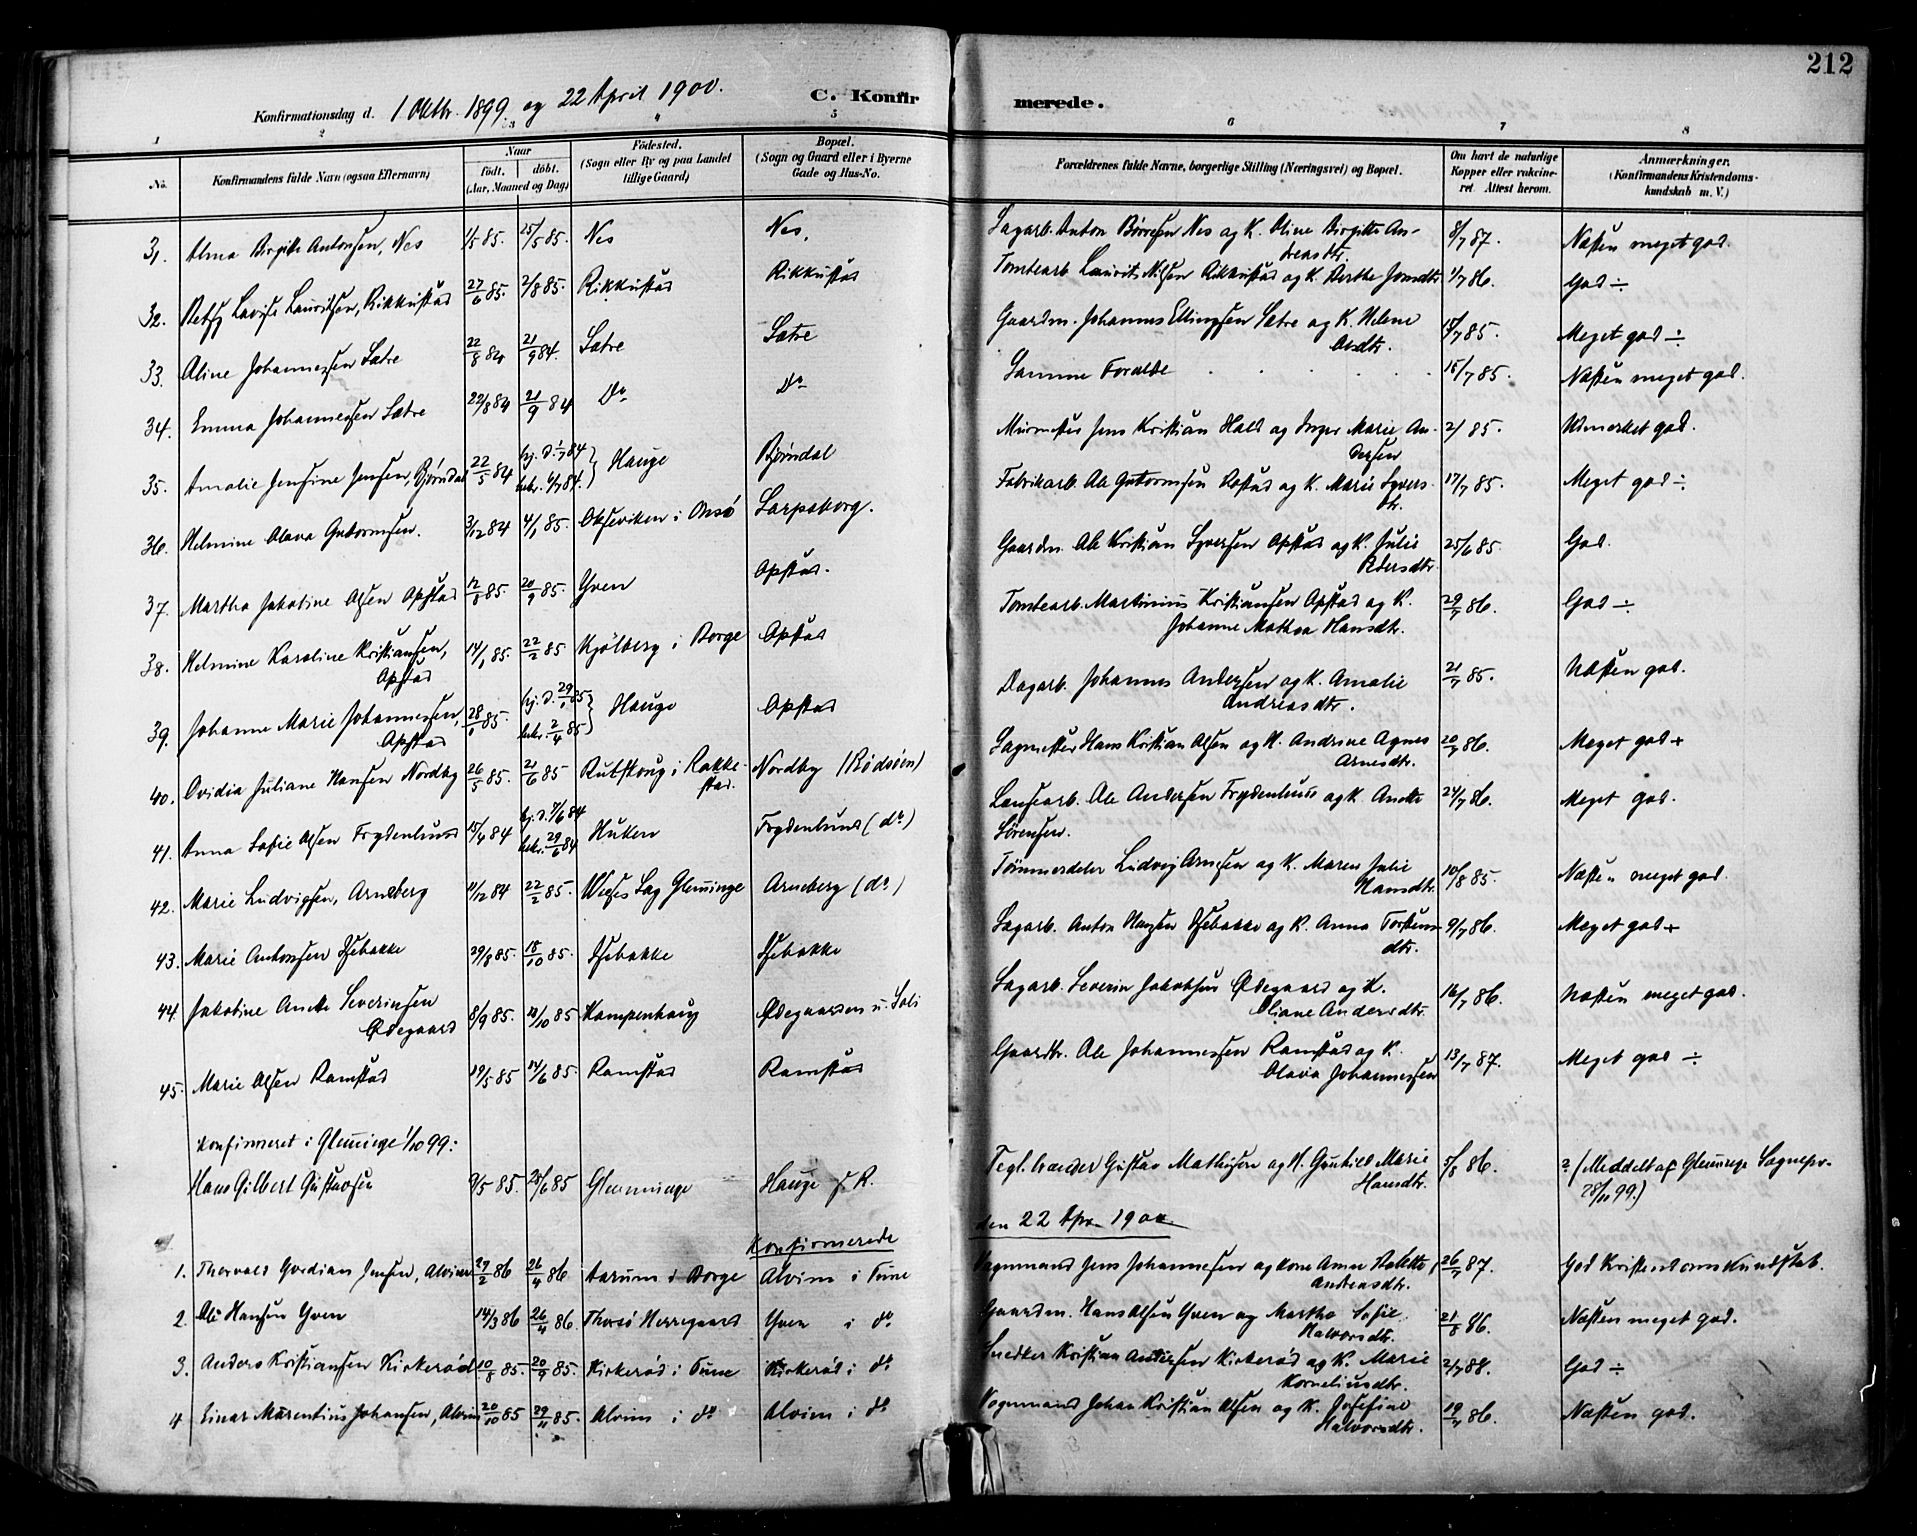 212
Konfirmationsdag d. 1 Oktbr. 1899. og 22 April 1900.
C. Konfir
merede.
1 2 3 4 5 6 7 8
No.
Konfirmandens fulde Navn (ogsaa Efternavn)
Naar
født. døbt.
(Aar, Maaned og Dag)
Fødested.
(Sogn eller By og paa Landet
tillige Gaard)
Bopæl.
(Sogn og Gaard eller i Byerne
Gade og Hus-No.
Forældrenes fulde Navne, borgerlige Stilling (Næringsvei) og Bopæl.
Om havt de naturlige
Kopper eller vakcine-
ret. Attest herom.
Anmærkninger.
(Konfirmandens Kristendoms-
kundskab m. V.)
31. Alma Birgitte Antonsen, Nes 1/5 85. 25/5 85. Nes Nes, Sagarb. Anton Børresen Nes og K. Oline Birgitte An- 8/7 87. Næsten meget god.
dreasdtr.
32. Betsy Lovise Lauritsen, Rikkustad 27/6 85. 2/8 85. Rikkustad Rikkustad Tomtearb. Laurits Nilsen Rikkustad og K. Berthe Jonsdtr 1/7 86. God ÷
33. Aline Johannessen Sætre 22/8 84 21/9 84. Sætre Sætre Gaardm. Johannes Ellingsen Sætre og K. Helene 15/7 85. Meget god ÷
Olsdtr.
34. Emma Johannessen Sætre 22/8 84 21/9 84 Do Do Samme Forældre 15/7 85. Næsten meget god.
35. Amalie Jensine Jensen, Bjørndal 22/5 84 hj. d. 1/7 84 Hauge Bjørndal Murmester Jens Kristian Hals og Inger Marie An- 2/ 85. Udmerket god.
bekr. 6/7 84. dersen
36. Helmine Olava Gutormsen. 3/12 84 4/1 85. Okseviken i Onsø Sarpsborg. Fabrikarb. Ole Gutormsen Opstad og K. Marie Syvers- 17/7 85. Meget god ÷
dtr.
37. Martha Jakobine Olsen Opstad 12/8 85. 20/9 85. Yven Opstad. Gaardm. Ole Kristian Syversen Opstad og K. Julie 25/6 85. God.
Pedersdtr.
38. Helmine Karoline Kristiansen, 14/1 85. 22/2 85 Kjølberg i Borge Opstad Tomtearb. Martinius Kristiansen Opstad og K. 29/7 86. God ÷
Opstad Johanne Mathea Hansdtr.
39. Johanne Marie Johannessen, 28/1 85. hj. d. 29/1 85 Hauge Opstad Dagarb. Johannes Andersen og K. Amalie 21/7 85. Næsten god.
Opstad bekr. 2/4 85 Andreasdtr.
40. Ovidia Juliane Hansen Nordby 26/5 85. 21/6 85 Rutskoug i Rakke- Nordby (Rødsøen) Sagmester Hans Kristian Olsen og K. Andrine Agnes 20/7 86. Meget god +
stad. Arnesdtr.
41. Anna Sofie Olsen Frydenlund 15/4 84 hj. d. 7/6 84 Huken Frydenlund (do) Landsearb. Ole Andersen Frydenlund og K. Anette 24/7 86. Meget god.
bekr. 29/6 84 Sørensen.
42. Marie Ludvigsen, Arneberg 11/12 84 22/2 85. Weses Sag Glemminge Arneberg (do) Tømmerdeler Ludvig Arnesen og K. Maren Julie 10/8 85. Næsten meget god.
Hansdtr.
43. Marie Antonsen Isebakke 29/8 85. 18/10 85. Isebakke Isebakke Sagarb. Anton Hansen Isebakke og K. Anna Torstens 9/7 86. Meget god +
dtr.
44. Jakobine Anette Severinsen 8/9 85. 18/10 85 Kampenhaug Ødegaarden u. Soli Sagarb. Severin Jakobsen Ødegaard og K. 16/7 86. Næsten meget god.
Ødegaard Oliane Andersdtr.
45. Marie Olsen Ramstad 19/5 85 14/6 85. Ramstad Ramstad Gaardbr. Ole Johannessen Ramstad og K. 13/7 87. Meget god ÷
Olava Johannessen
Konfirmeret i Glemminge 1/10 99:
Hans Gilbert Gustavsen 9/5 85. 28/6 85 Glemminge Hauge p. R. Tegl.brænder Gustav Mathisen og K. Gunhild Marie 5/8 86. ? (Meddelt af Glemminge Sognepr.
Hansdtr. 28/11 99.)
Konfirmerede den 22 Apr. 1900.
1. Thorvald Gverdian Jensen, Alvim 27/2 86 26/4 86 Aarum i Borge Alvim i Tune Vognmand Jens Johannessen og kone Anne Babette 26/7 87. God Kristendomskundskab.
Andreasdtr.
2. Ole Hansen Yven 14/3 86 26/4 86. Thorsø Herregaard Yven i do Gaardm. Hans Olsen Yven og Martha Sofie 21/8 86. Næsten meget god.
Halvorsdtr.
3. Anders Kristiansen Kirkerød 10/8 85. 20/9 85. Kirkerød i Tune Kirkerød i do Snedker Kristian Andersen Kirkerød og K. Marie 2/7 88. God ÷
Korneliusdtr.
4 Einar Marentius Johansen, Alvim 20/10 85 29/11 85. Alvim i do Alvim i do Vognmand Johan Kristian Olsen og K. Josefine 19/7 86. Næsten god.
Halvorsdtr.